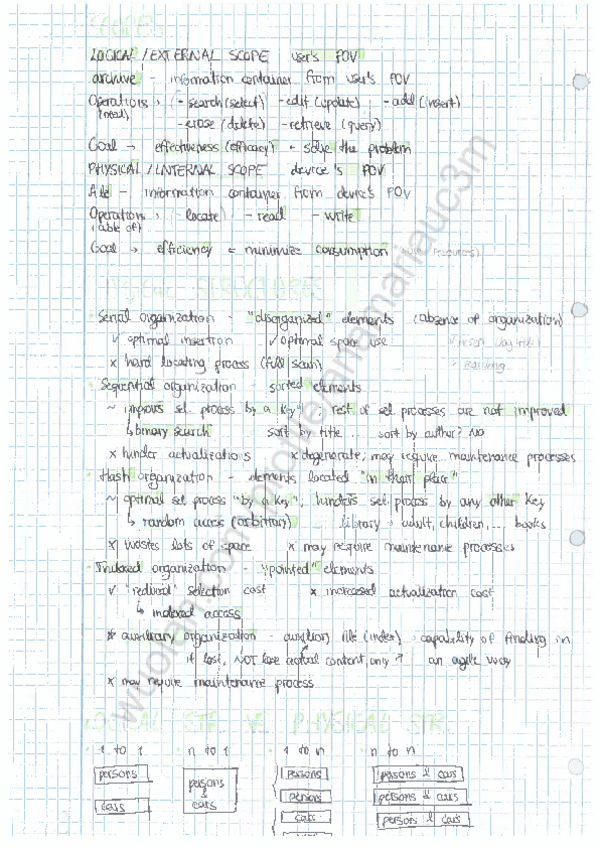 SCOPES
LOGICAL / EXTERNAL SCOPE user's POV
archive - information container from user's POV
Operations - search (select) - edit (update) - add (insert)
(need)
- erase (delete) - retrieve (query)
Goal → effectiveness (efficacy) = solve the problem
PHYSICAL / INTERNAL SCOPE device's POV
File - information container from device's POV
Operations - locate - read - write
(able of)
Goal → efficiency = minimize consumption (resources)
STRUCTURES
· Serial organization - "disorganized" elements (absence of organization)
✓ optimal insertion ✓ optimal space use
x hard locating process (full scan)
· Sequential organization - sorted elements
~ improves sel. process "by a key"; rest of sel. processes are not improved
↳ binary search sort by title ... sort by author? NO
x hinder actualizations x degenerate; may require maintenance processes
· Hash organization - elements located "in their place"
~ optimal sel process "by a key", hinders sel. process by any other key
↳ random access (arbitrary) library → adult, children, ... books
x wastes lots of space x may require maintenance processes
· Indexed organization - "pointed" elements
✓ "reduced" selection cost x increased actualization cost
↳ indexed access
* auxiliary organization - auxiliary file (index) → capability of finding in
if lost, NOT lose actual content, only ↗ an agile way
x may require maintenance process
LOGICAL STR VS PHYSICAL STR
· 1 to 1 · n to 1 · 1 to n · n to n
persons persons & cars persons persons & cars
cars persons persons & cars
cars persons & cars
wuolah.com/profile/anamariauc3m